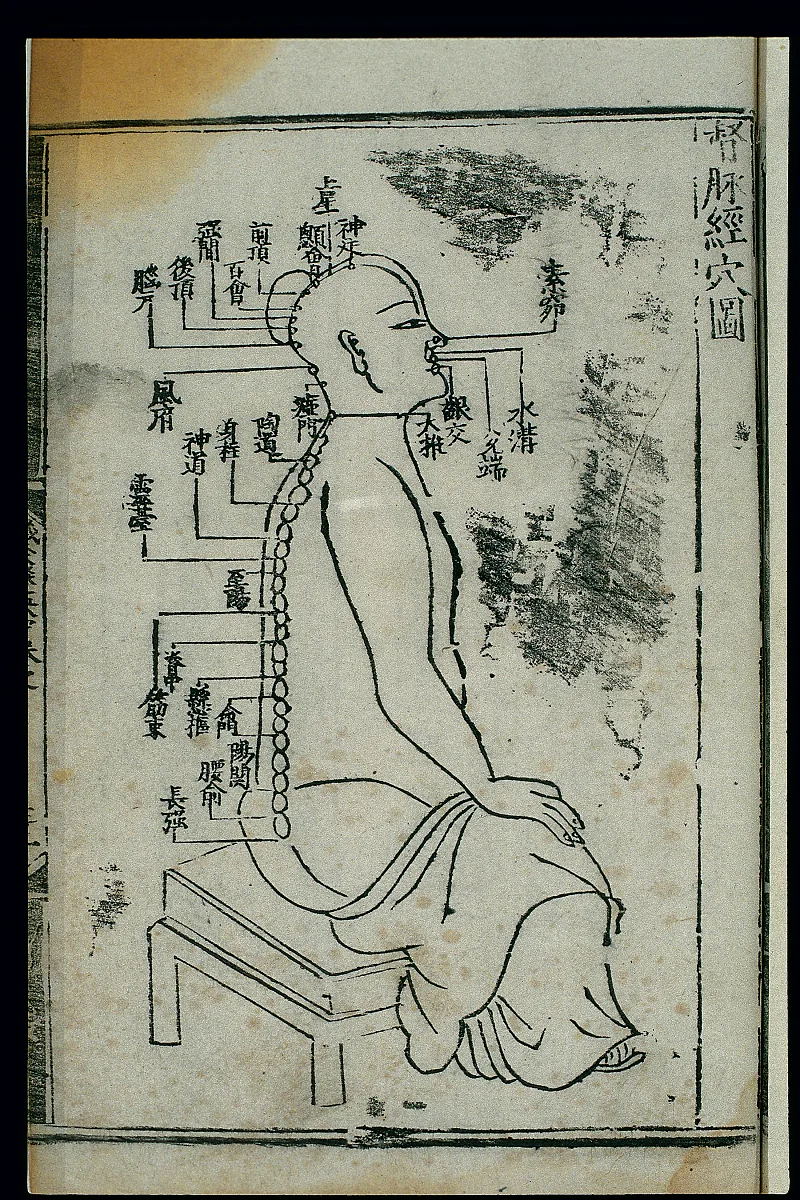 督脉經穴圖
素窌
水溝
兌端
齦交
大椎
神廷
上星
顖會
前頂
百會
強間
後頂
腦戶
風府
瘂門
陶道
身柱
神道
靈臺
至陽
筋束
脊中
縣樞
命門
陽関
腰俞
長強